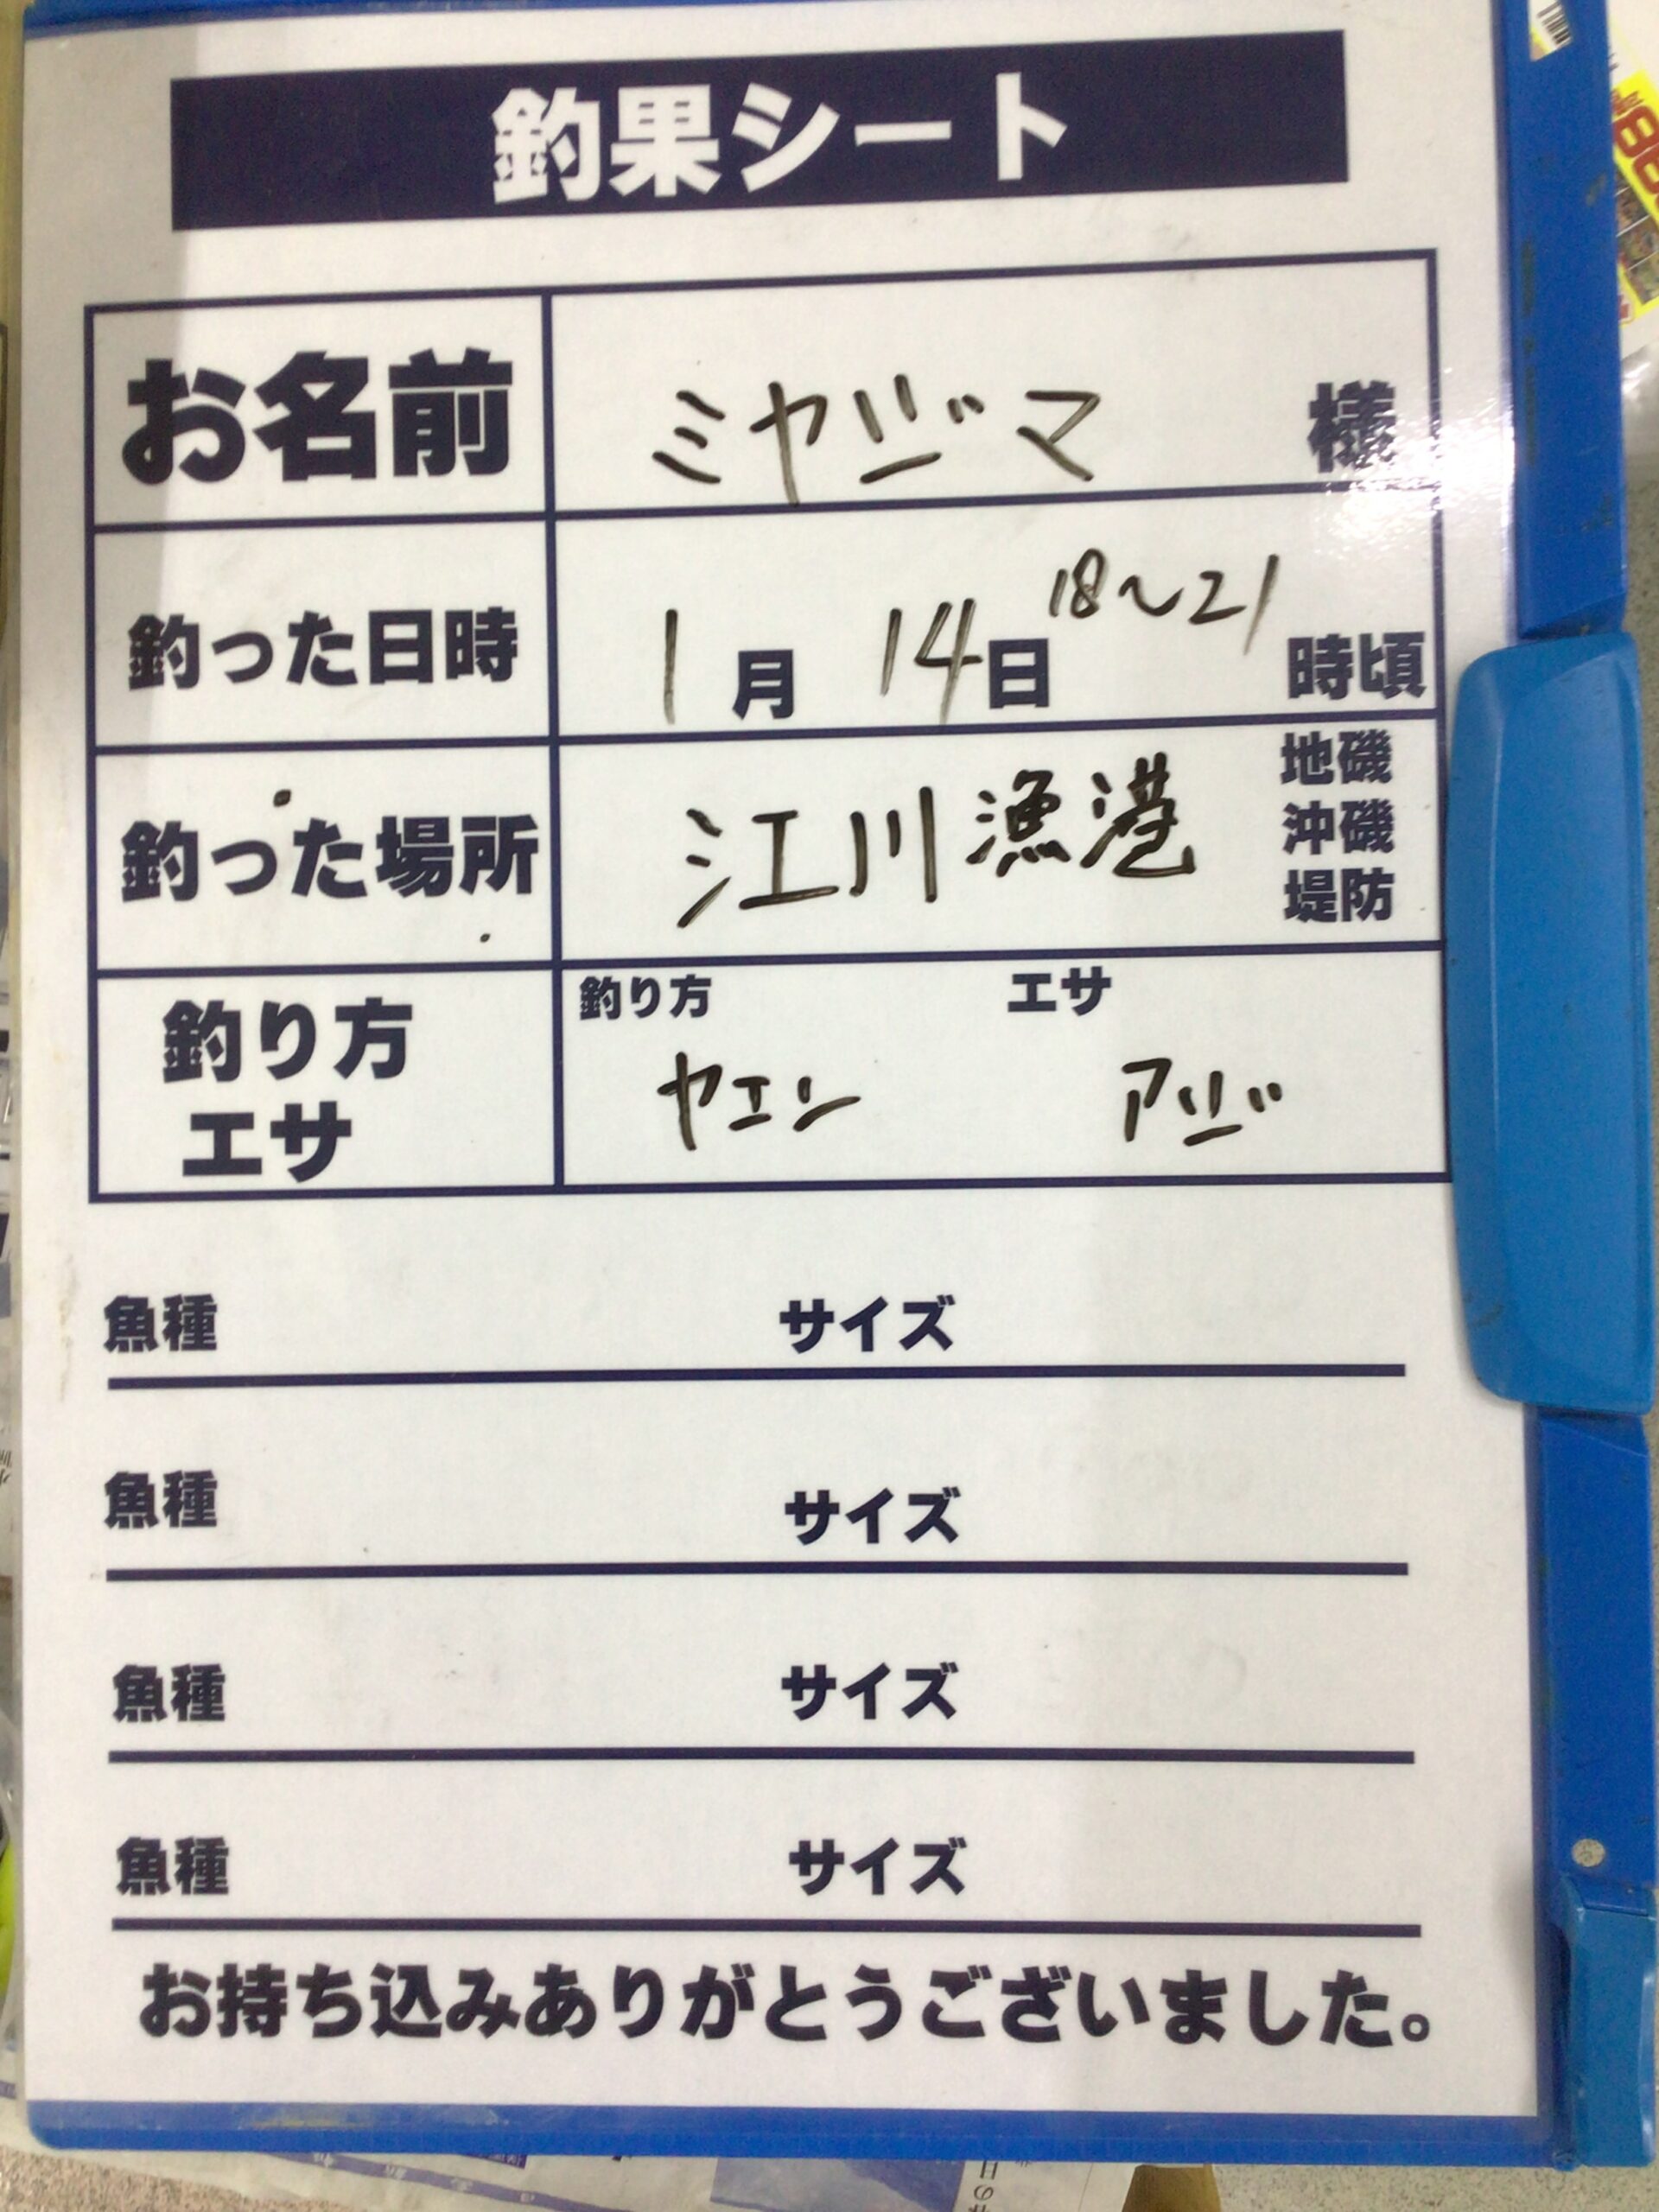 釣果シート
お名前 ミヤジマ 様
釣った日時 1月 14日 18~21 時頃
釣った場所 江川漁港 地磯
沖磯
堤防
釣り方 エサ
釣り方 エサ
ヤエン アジ
魚種 サイズ
魚種 サイズ
魚種 サイズ
魚種 サイズ
お持ち込みありがとうございました。